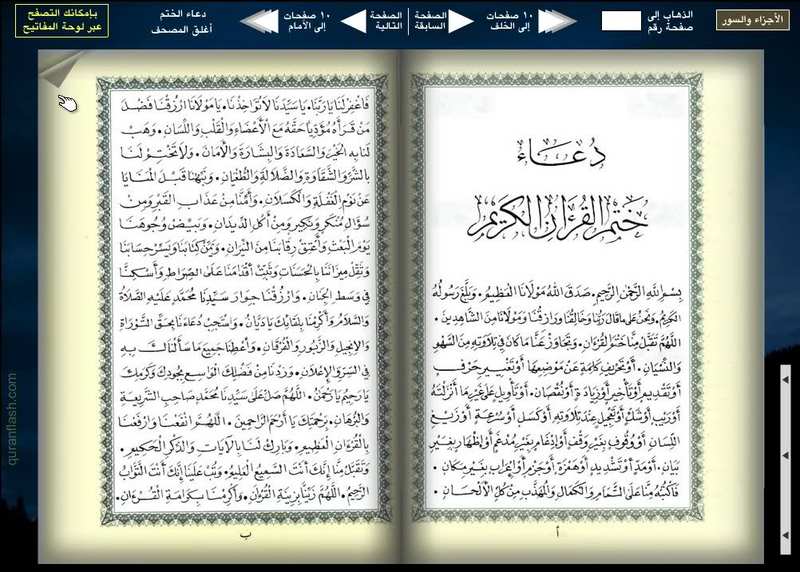 الأجزاء والسور
الذهاب إلى
صفحة رقم
١٠ صفحات
إلى الخلف
الصفحة
السابقة
الصفحة
التالية
١٠ صفحات
إلى الأمام
دعاء الختم
أغلق المصحف
بإمكانك التصفح
عبر لوحة المفاتيح
دُعَاء
خَتْمِ القُرْآنِ الكَرِيمِ
بِسْمِ اللهِ الرَّحْمٰنِ الرَّحِيمِ. صَدَقَ اللهُ مَوْلَانَا العَظِيمُ. وَبَلَّغَ رَسُولُهُ
الكَرِيمُ. وَنَحْنُ عَلَى مَا قَالَ رَبُّنَا وَخَالِقُنَا وَرَازِقُنَا وَمَوْلَانَا مِنَ الشَّاهِدِينَ.
اللّٰهُمَّ تَقَبَّلْ مِنَّا خَتْمَ القُرْآنِ. وَتَجَاوَزْ عَنَّا مَا كَانَ فِي تِلَاوَتِهِ مِنَ السَّهْوِ
وَالنِّسْيَانِ. أَوْ تَحْرِيفِ كَلِمَةٍ عَنْ مَوْضِعِهَا أَوْ تَغْيِيرِ حَرْفٍ.
أَوْ تَقْدِيمٍ أَوْ تَأْخِيرٍ أَوْ زِيَادَةٍ أَوْ نُقْصَانٍ. أَوْ تَأْوِيلٍ عَلَى غَيْرِ مَا أَنْزَلْتَهُ
أَوْ رَيْبٍ أَوْ شَكٍّ أَوْ تَعْجِيلٍ عِنْدَ تِلَاوَتِهِ أَوْ كَسَلٍ أَوْ سُرْعَةٍ أَوْ زَيْغِ
اللِّسَانِ أَوْ وُقُوفٍ بِغَيْرِ وَقْفٍ أَوْ إِدْغَامٍ بِغَيْرِ مُدْغَمٍ أَوْ إِظْهَارٍ بِغَيْرِ
بَيَانٍ. أَوْ مَدٍّ أَوْ تَشْدِيدٍ أَوْ هَمْزَةٍ أَوْ جَزْمٍ أَوْ إِعْرَابٍ بِغَيْرِ مَكَانٍ.
فَاكْتُبْهُ مِنَّا عَلَى التَّمَامِ وَالكَمَالِ وَالمُهَذَّبِ مِنْ كُلِّ الأَلْحَانِ.
أ
فَاغْفِرْ لَنَا يَا رَبَّنَا. يَا سَيِّدَنَا لَا تُؤَاخِذْنَا. يَا مَوْلَانَا ارْزُقْنَا فَضْلَ
مَنْ قَرَأَهُ مُؤَدِّيًا حَقَّهُ مَعَ الأَعْضَاءِ وَالقَلْبِ وَاللِّسَانِ. وَهَبْ
لَنَا بِهِ الخَيْرَ وَالسَّعَادَةَ وَالبِشَارَةَ وَالأَمَانَ. وَلَا تَخْتِمْ لَنَا
بِالشَّرِّ وَالشَّقَاوَةِ وَالضَّلَالَةِ وَالطُّغْيَانِ. وَنَبِّهْنَا قَبْلَ المَنَايَا
عَنْ نَوْمِ الغَفْلَةِ وَالكَسْلَانِ. وَأَمِّنَّا مِنْ عَذَابِ القَبْرِ وَمِنْ
سُؤَالِ مُنْكَرٍ وَنَكِيرٍ وَمِنْ أَكْلِ الدِّيدَانِ. وَبَيِّضْ وُجُوهَنَا
يَوْمَ البَعْثِ وَأَعْتِقْ رِقَابَنَا مِنَ النِّيرَانِ. وَيَمِّنْ كِتَابَنَا وَيَسِّرْ حِسَابَنَا
وَثَقِّلْ مِيزَانَنَا بِالحَسَنَاتِ وَثَبِّتْ أَقْدَامَنَا عَلَى الصِّرَاطِ وَأَسْكِنَّا
فِي وَسَطِ الجِنَانِ. وَارْزُقْنَا جِوَارَ سَيِّدِنَا مُحَمَّدٍ عَلَيْهِ الصَّلَاةُ
وَالسَّلَامُ وَأَكْرِمْنَا بِلِقَائِكَ يَا دَيَّانُ. وَاسْتَجِبْ دُعَاءَنَا بِحَقِّ التَّوْرَاةِ
وَالإِنْجِيلِ وَالزَّبُورِ وَالفُرْقَانِ. وَأَعْطِنَا جَمِيعَ مَا سَأَلْنَاكَ بِهِ
فِي السِّرِّ وَالإِعْلَانِ. وَزِدْنَا مِنْ فَضْلِكَ الوَاسِعِ بِجُودِكَ وَكَرَمِكَ
يَا رَحِيمُ يَا رَحْمٰنُ. اللّٰهُمَّ صَلِّ عَلَى سَيِّدِنَا مُحَمَّدٍ صَاحِبِ الشَّرِيعَةِ
وَالبُرْهَانِ. بِرَحْمَتِكَ يَا أَرْحَمَ الرَّاحِمِينَ. اللّٰهُمَّ انْفَعْنَا وَارْفَعْنَا
بِالقُرْآنِ العَظِيمِ. وَبَارِكْ لَنَا بِالآيَاتِ وَالذِّكْرِ الحَكِيمِ.
وَتَقَبَّلْ مِنَّا إِنَّكَ أَنْتَ السَّمِيعُ العَلِيمُ. وَتُبْ عَلَيْنَا إِنَّكَ أَنْتَ التَّوَّابُ
الرَّحِيمُ. اللّٰهُمَّ زَيِّنَّا بِزِينَةِ القُرْآنِ. وَأَكْرِمْنَا بِكَرَامَةِ القُرْآنِ.
ب
quranflash.com